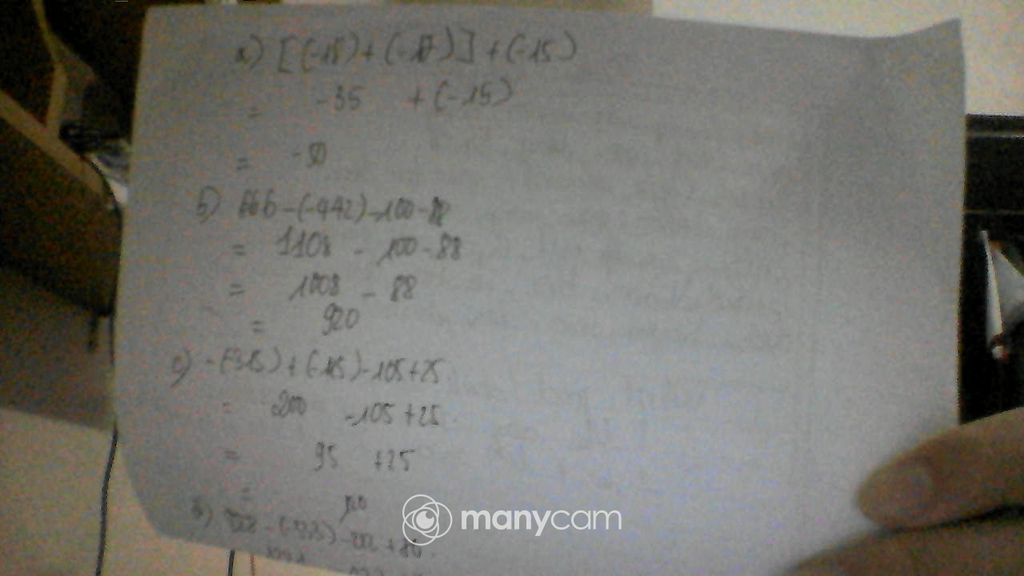 a) [(-18) + (-17)] + (-15)
= -35 + (-15)
= -50
b) 666 - (-442) - 100 - 88
= 1108 - 100 - 88
= 1008 - 88
= 920
c) -(-315) + (-115) - 105 + 25
= 200 - 105 + 25
= 95 + 25
= 120
manycam